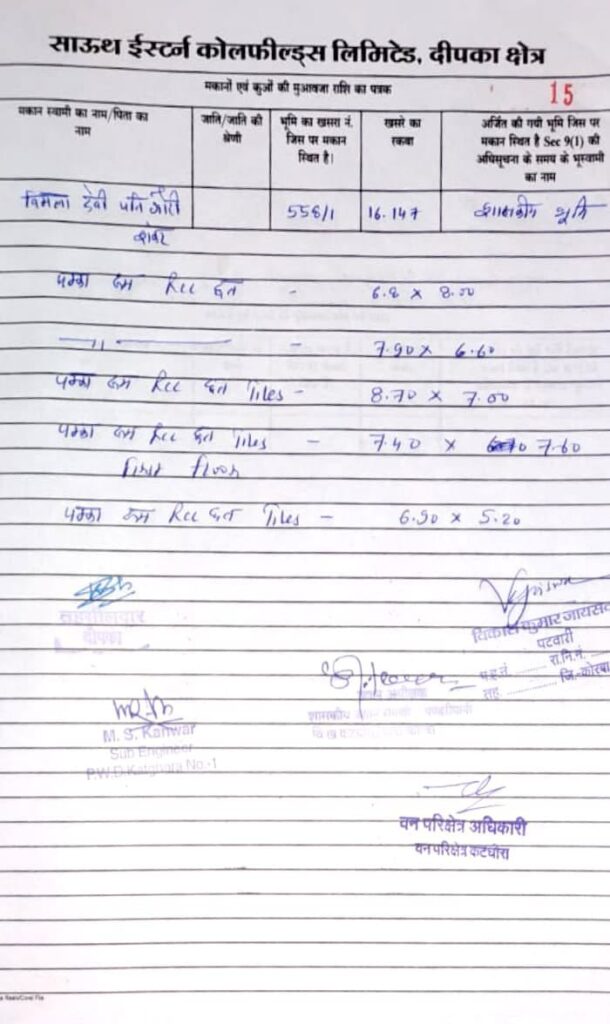 साऊथ ईस्टर्न कोलफील्ड्स लिमिटेड, दीपका क्षेत्र
मकानों एवं कुओं की मुआवजा राशि का पत्रक
15
मकान स्वामी का नाम/पिता का नाम
जाति/जाति की श्रेणी
भूमि का खसरा नं. जिस पर मकान स्थित है।
खसरे का रकबा
अर्जित की गयी भूमि जिस पर मकान स्थित है Sec 9(1) की अधिसूचना के समय के भूस्वामी का नाम
विमला देवी पति गौरी
556/1
16.147
शासकीय भूमि
पक्का रूम Rcc छत - 6.8 x 8.00
—ıı— - 7.90 x 6.60
पक्का रूम Rcc छत Tiles - 8.70 x 7.00
पक्का रूम Rcc छत Tiles - 7.40 x 7.60
First Floor
पक्का रूम Rcc छत Tiles - 6.90 x 5.20
तहसीलदार
दीपका
विकास कुमार जायसवाल
पटवारी
प.ह.नं. ........ रा.नि.नं. ......
तह. ............ जि.-कोरबा
M. S. Kanwar
Sub Engineer
P.W.D. Katghora No.-1
वन परिक्षेत्र अधिकारी
वन परिक्षेत्र कटघोरा